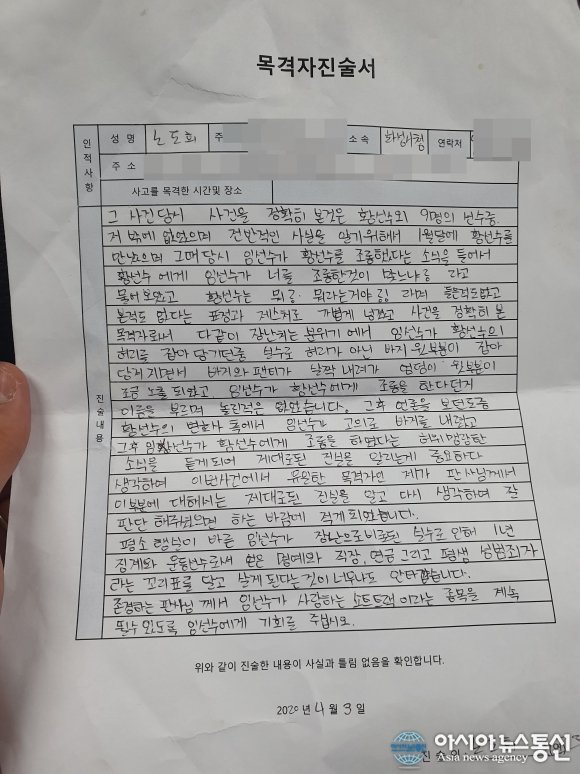 목격자진술서
인적사항
성 명 노도희 주 소속 화성시청 연락처
주 소
사고를 목격한 시간및 장소
진술내용
그 사건 당시 사건을 정확히 본것은 황선수외 9명의 선수중
저 밖에 없었으며 전반적인 사실을 알기위해서 1월달에 황선수를
만났으며 그때 당시 임선수가 황선수를 조롱했다는 소식을 들어서
황선수 에게 임선수가 너를 조롱한것이 맞느냐? 라고
물어보았고 황선수는 뭐? 뭐라는거야? 라며 들은적도없고
본적도 없다는 표정과 제스처로 가볍게 넘겼고 사건을 정확히 본
목격자로서 다같이 장난치는 분위기에서 임선수가 황선수의
허리를 잡아당기던중 실수로 허리가 아닌 바지 윗부분이 잡아
당겨지면서 바지와 팬티가 살짝 내려가 엉덩이 윗부분이
조금 노출되었고 임선수가 황선수에게 조롱을 한다던지
이름을 부르며 놀린적은 없었습니다. 그후 언론을 보던도중
황선수의 변호사 측에서 임선수가 고의로 바지를 내렸고
그후 임선수가 황선수에게 조롱을 하였다는 허위맹랑한
소식을 듣게되어 제대로된 진실을 알리는게 중요하다
생각하여 이번사건에서 유일한 목격자인 제가 판사님께서
이부분에 대해서는 제대로된 진실을 알고 다시 생각하여 잘
판단 해주셨으면 하는 바람에 적게되었습니다.
평소 행실이 바른 임선수가 장난으로 비롯된 실수로 인해 1년
징계와 운동선수로서 얻은 명예와 직장, 연금 그리고 평생 성범죄자
라는 꼬리표를 달고 살게 된다는 것이 너무나도 안타깝습니다.
존경하는 판사님 께서 임선수가 사랑하는 쇼트트랙 이라는 종목을 계속
탈수 있도록 임선수에게 기회를 주십시오.
위와 같이 진술한 내용이 사실과 틀림 없음을 확인합니다.
2020 년 4 월 3 일
진 술 인 :
아시아뉴스통신
Asia news agency